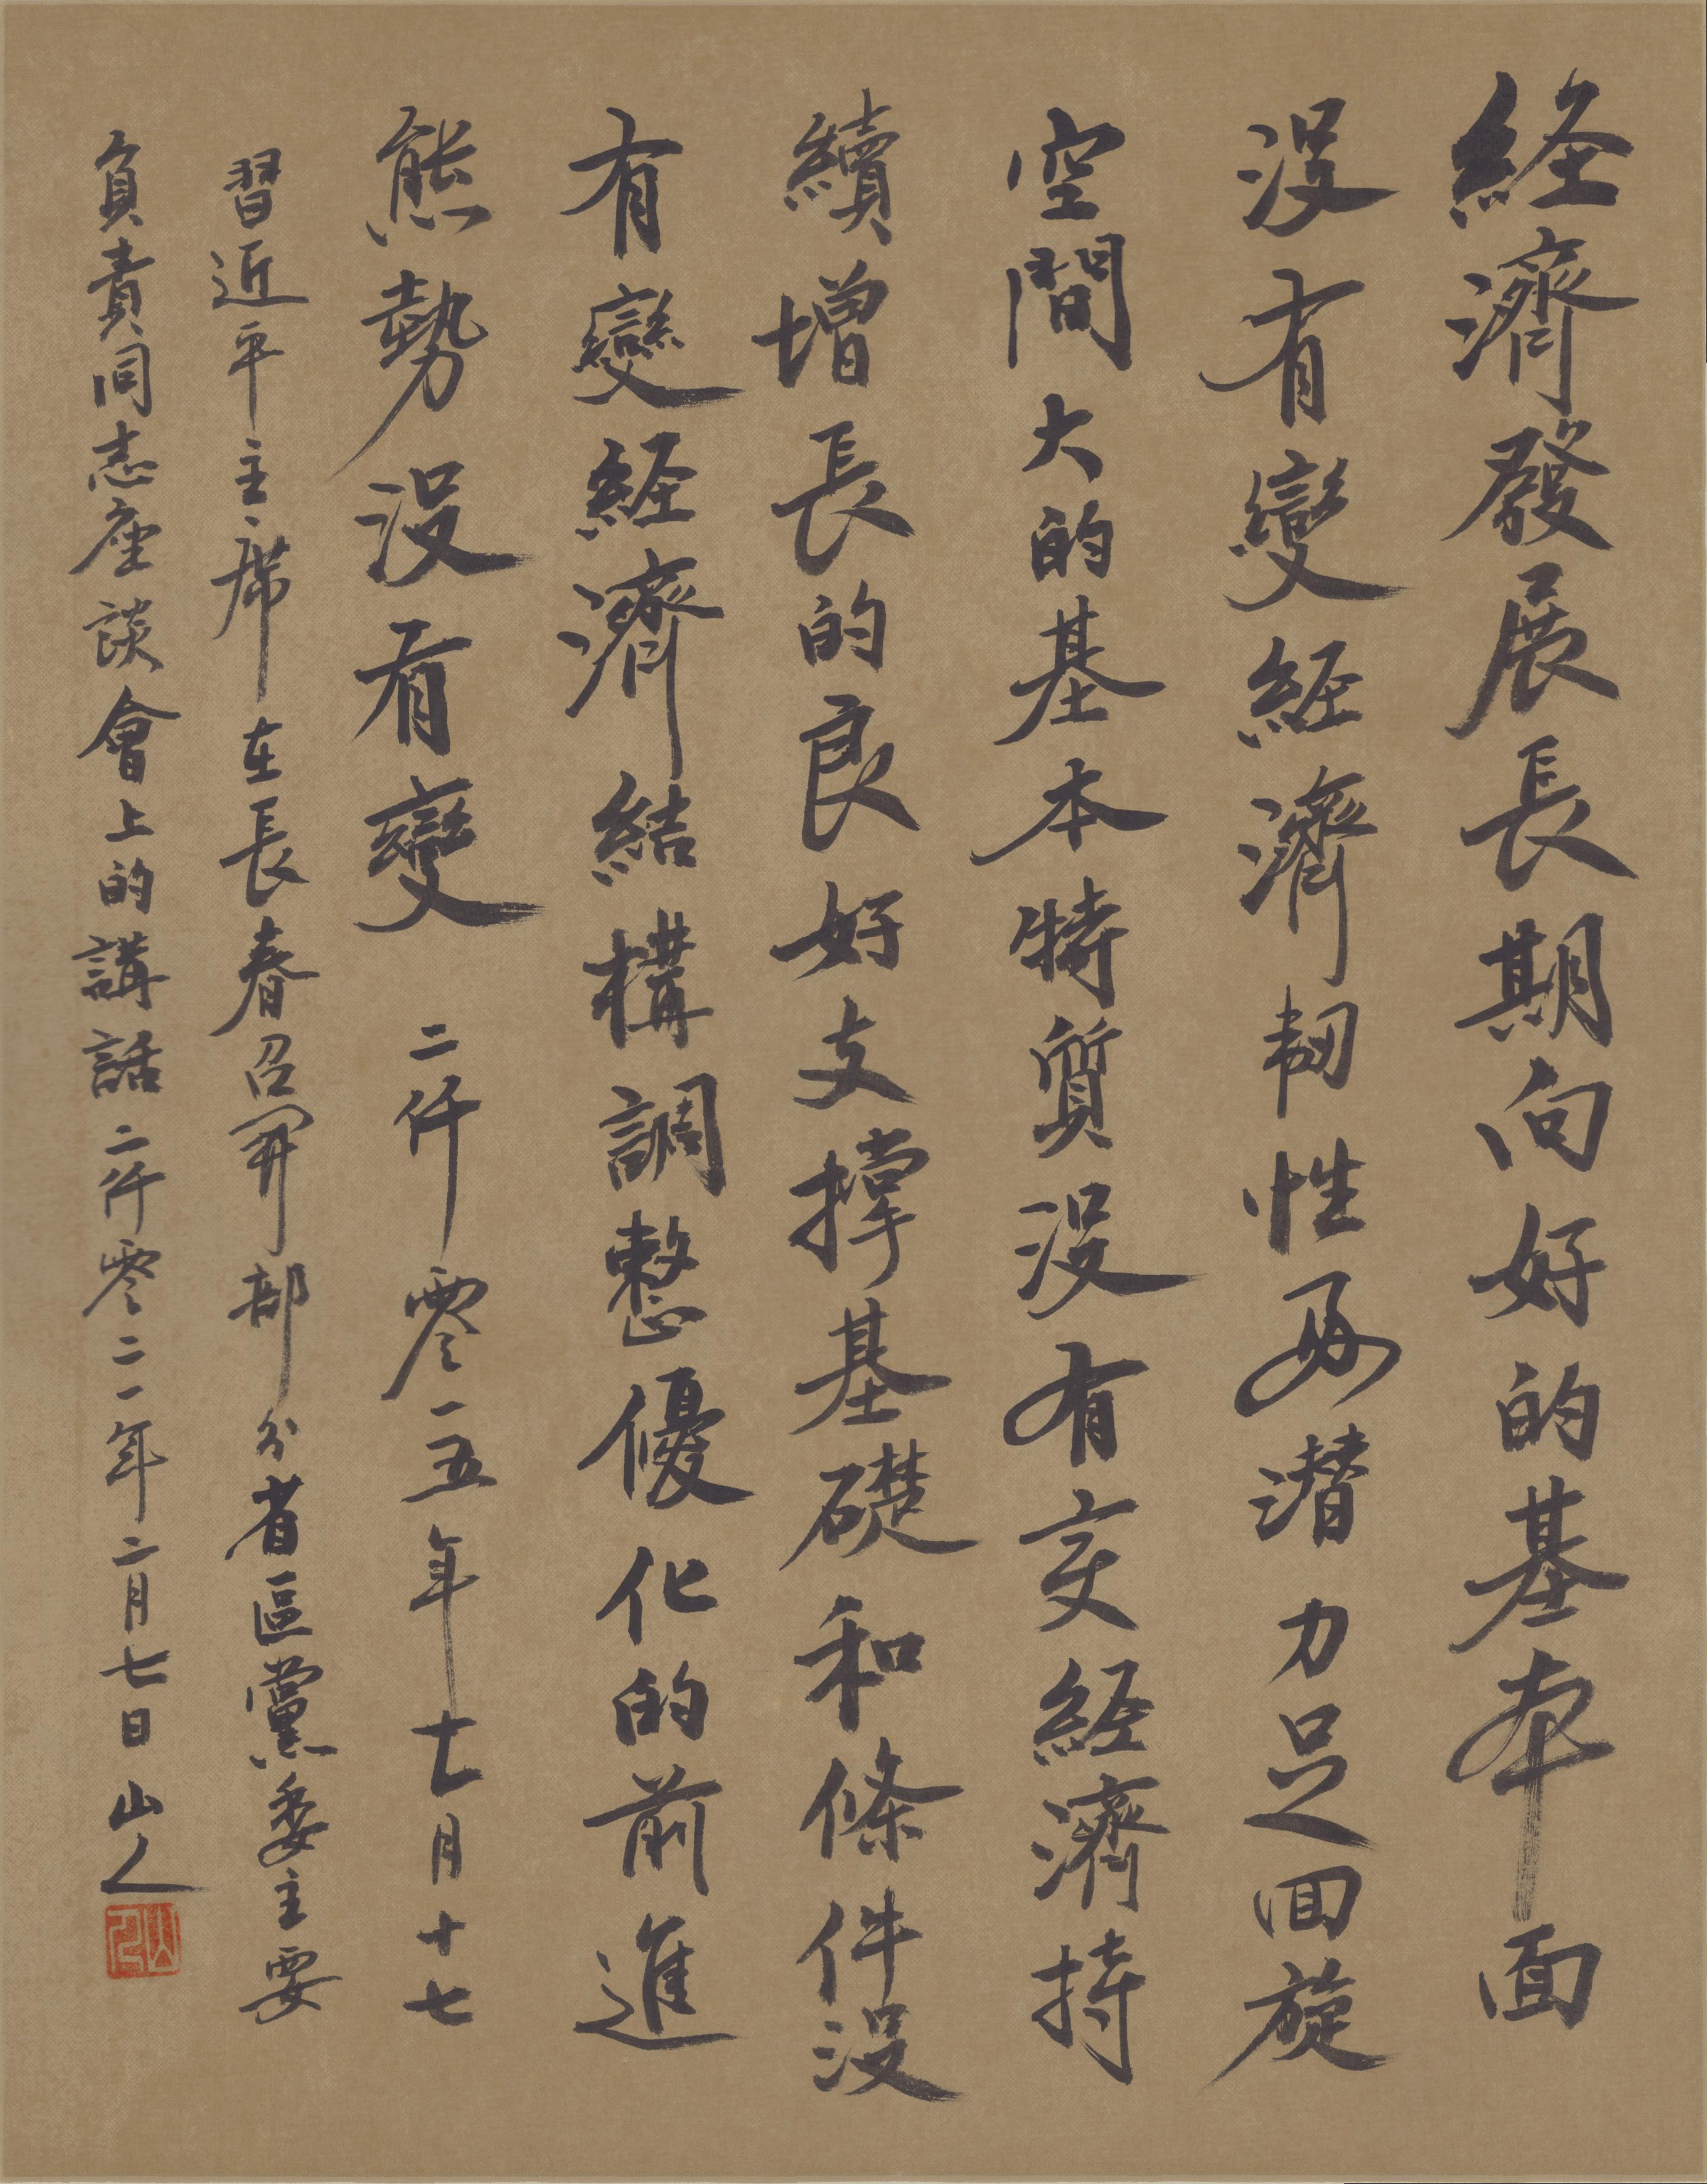 経濟發展長期向好的基本面
沒有變経濟韧性好潛力足回旋
空間大的基本特質沒有变経濟持
續增長的良好支撐基礎和條件沒
有變経濟結構調整優化的前進
態勢沒有變 二仟零一五年七月十七
習近平主席在長春召開部分省區黨委主要
負責同志座談會上的講話 二仟零二一年二月七日 山人
山人